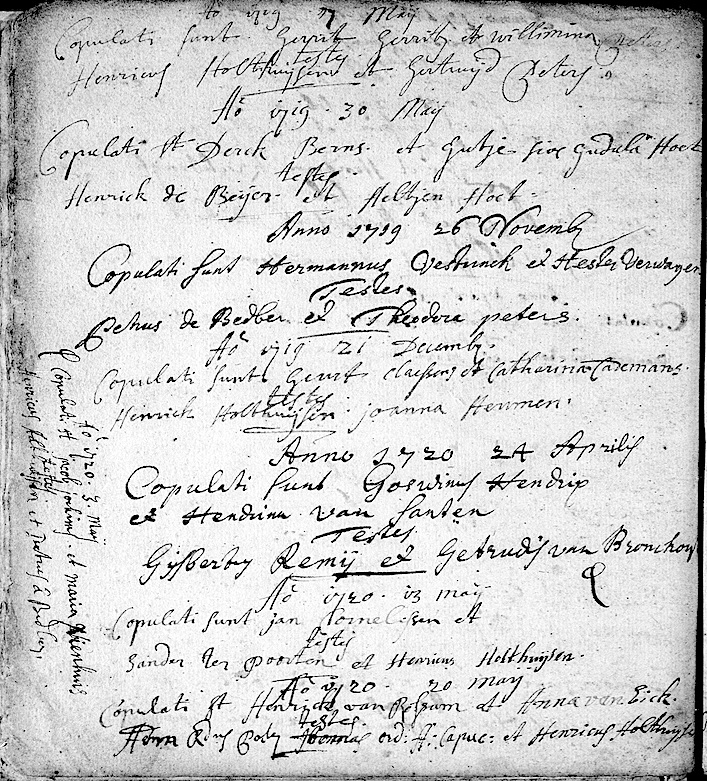 Aō 1719 17 Maij
Copulati sunt Gerrit Gerritz et Willimina Peters
testes
Henricus Holthuijsen et Gertruijd Peters.
Aō 1719 . 30 Maij
Copulati st Derck Berns. et Gutje sive Gudula Hoet
testes
Henrick de Beijer et Aeltjen Hoet.
Anno 1719 26 Novemb
Copulati sunt Hermannus Vestrinck et Hester Verwayen
Testes
Petrus de Bedber et Theodora peters.
Aō 1719 21 Decemb.
Copulati sunt Geurt Claessens et Catharina Cademans.
testes
Henrick Holthuijsen. joanna Heumen.
Anno 1720 24 Aprilis
Copulati sunt Goswinus Hendrix
et Hendrina van Santen
Testes
Gijsbertus Remij et Getrudis van Bronchorst
Aō 1720 . 13 maij
Copulati sunt jan Cornelissen et
testes
Sander ter Poorten et Henricus Holthuijsen.
Aō 1720 . 20 maij
Copulati st Henrick van Rossum et Anna van Eick.
testes
Adm Rdus Pater Thomas ord: Capuc: et Henricus Holthuijsen
Aō 1720 3 Maij
Copulati st jacob et maria
testes
Henricus Holthuijsen et Petrus d Bedber.